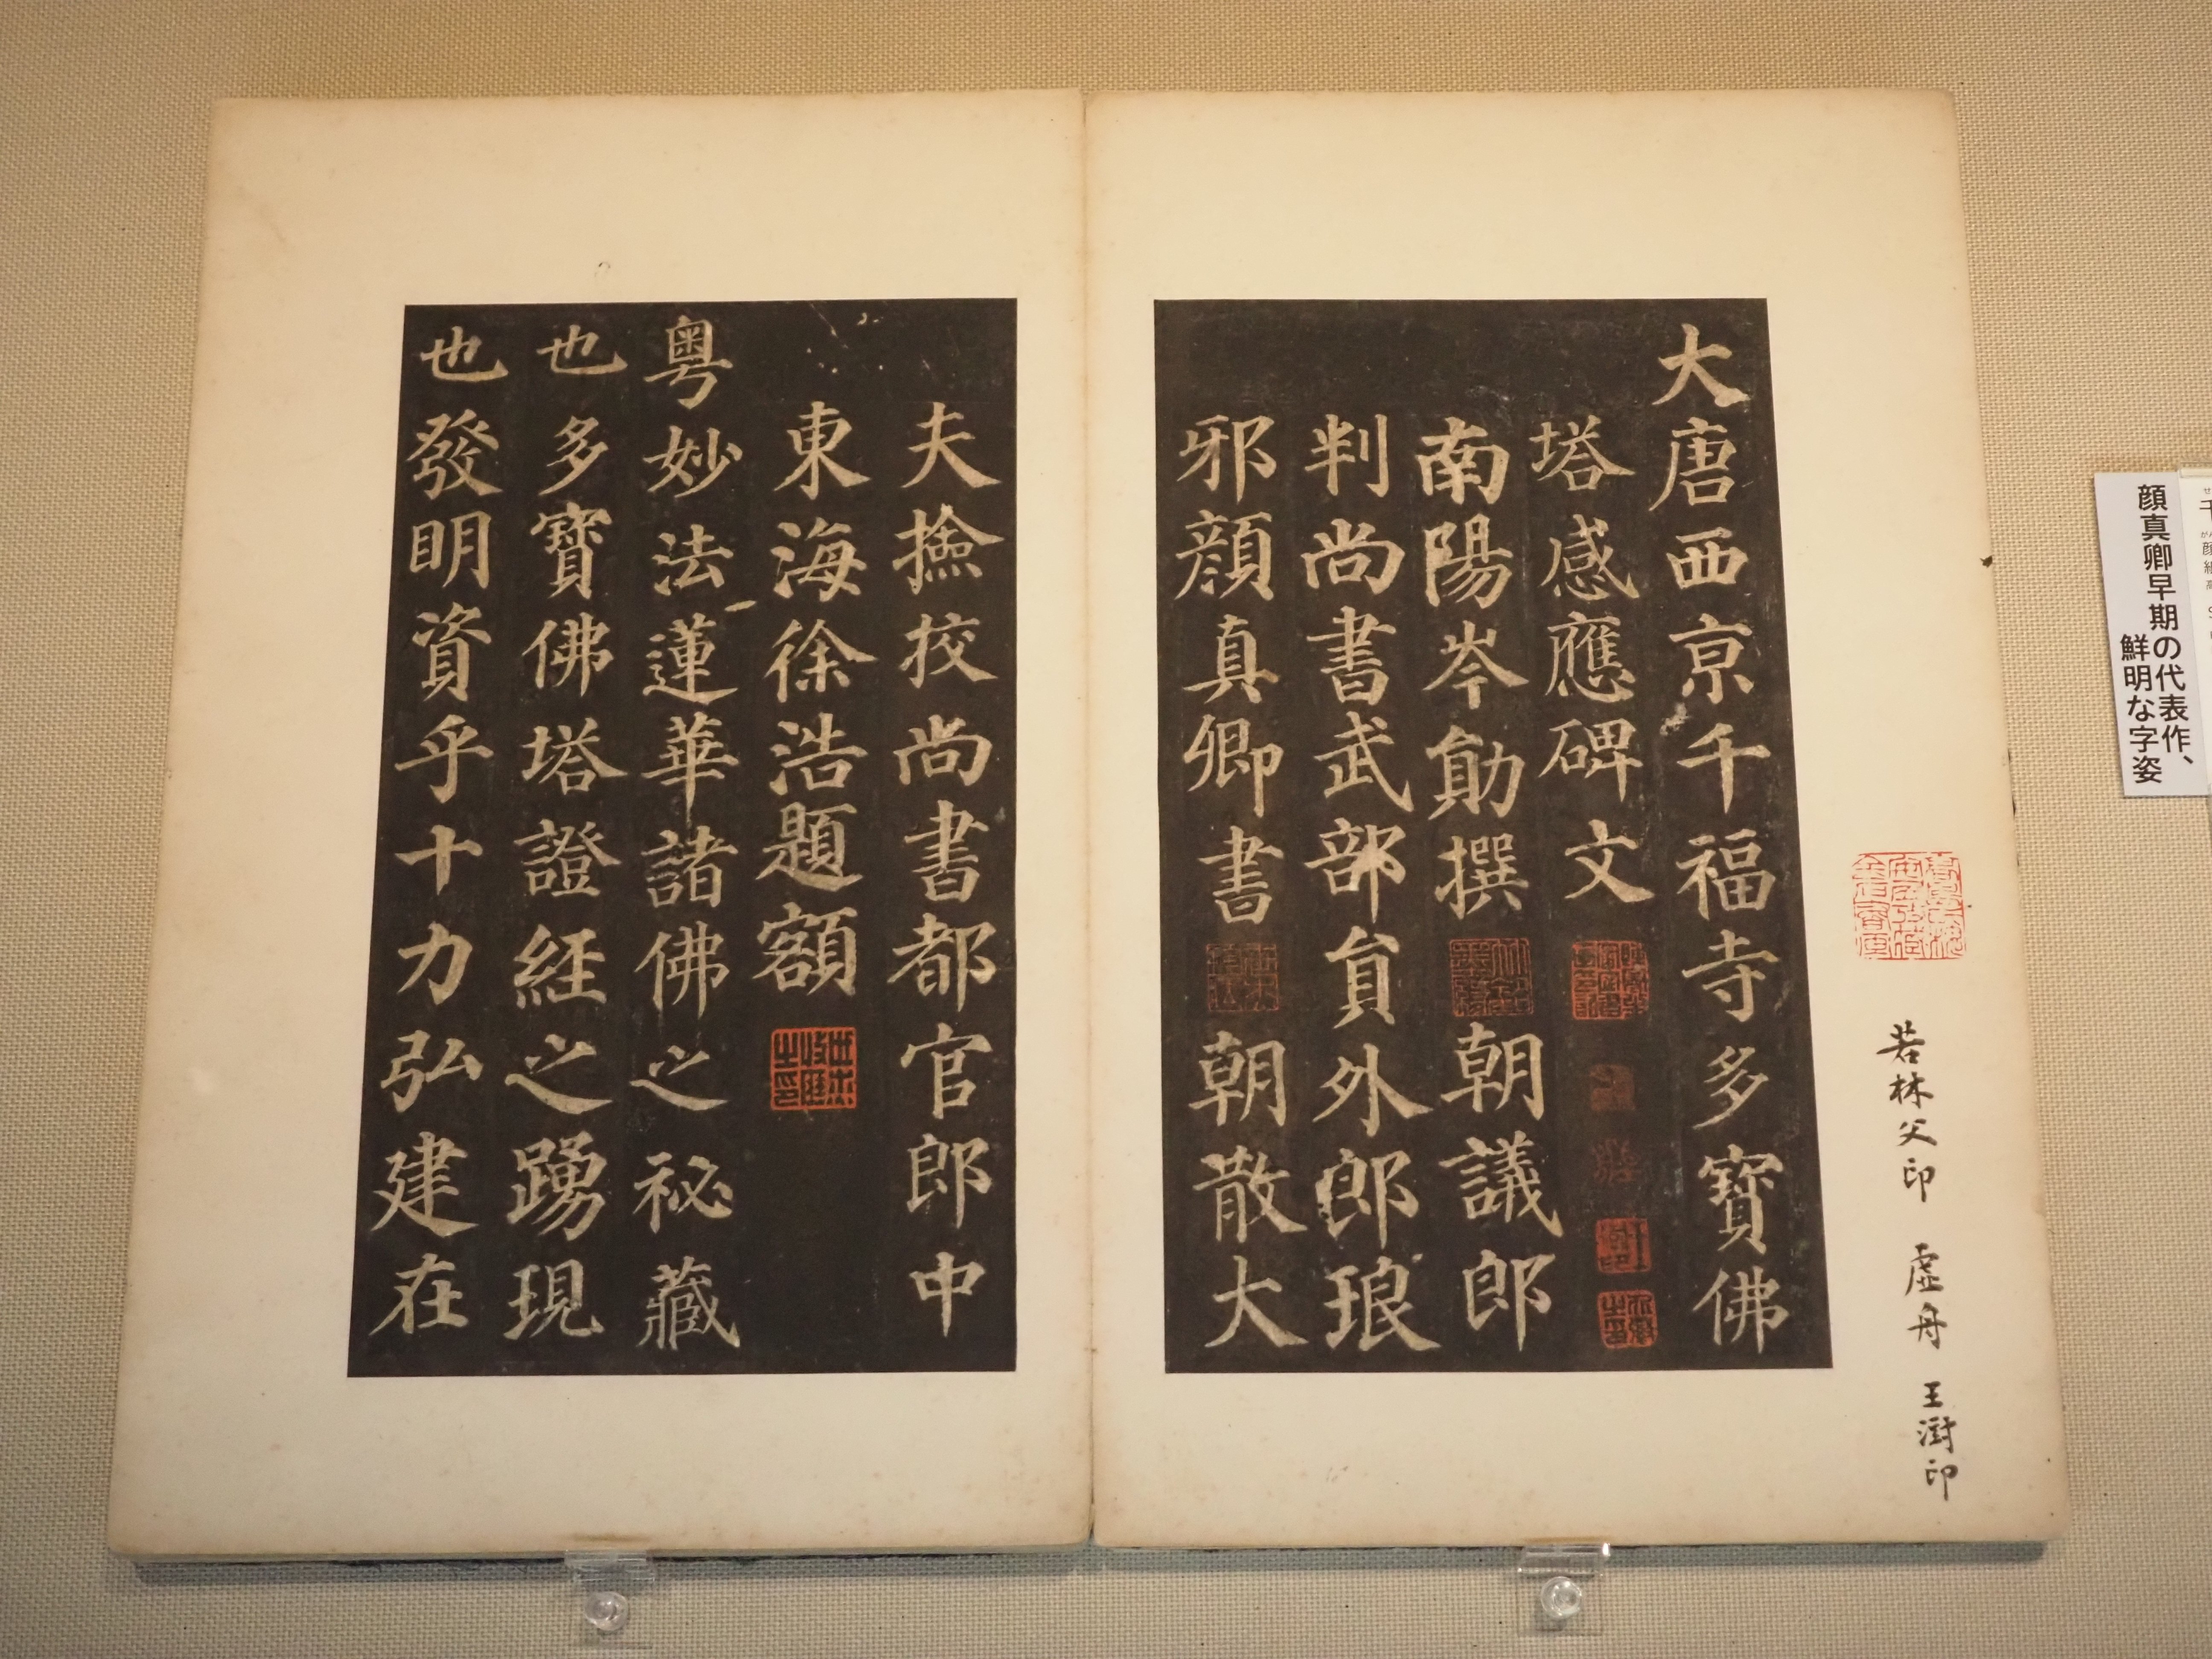 顔真卿早期の代表作、
鮮明な字姿
若林父印 虚舟 王澍印
大唐西京千福寺多寶佛
塔感應碑文
南陽岑勛撰 朝議郎
判尚書武部貟外郎琅
邪顏真卿書 朝散大
夫撿挍尚書都官郎中
東海徐浩題額
粵妙法蓮華諸佛之祕藏
也多寶佛塔證經之踴現
也發明資乎十力弘建在